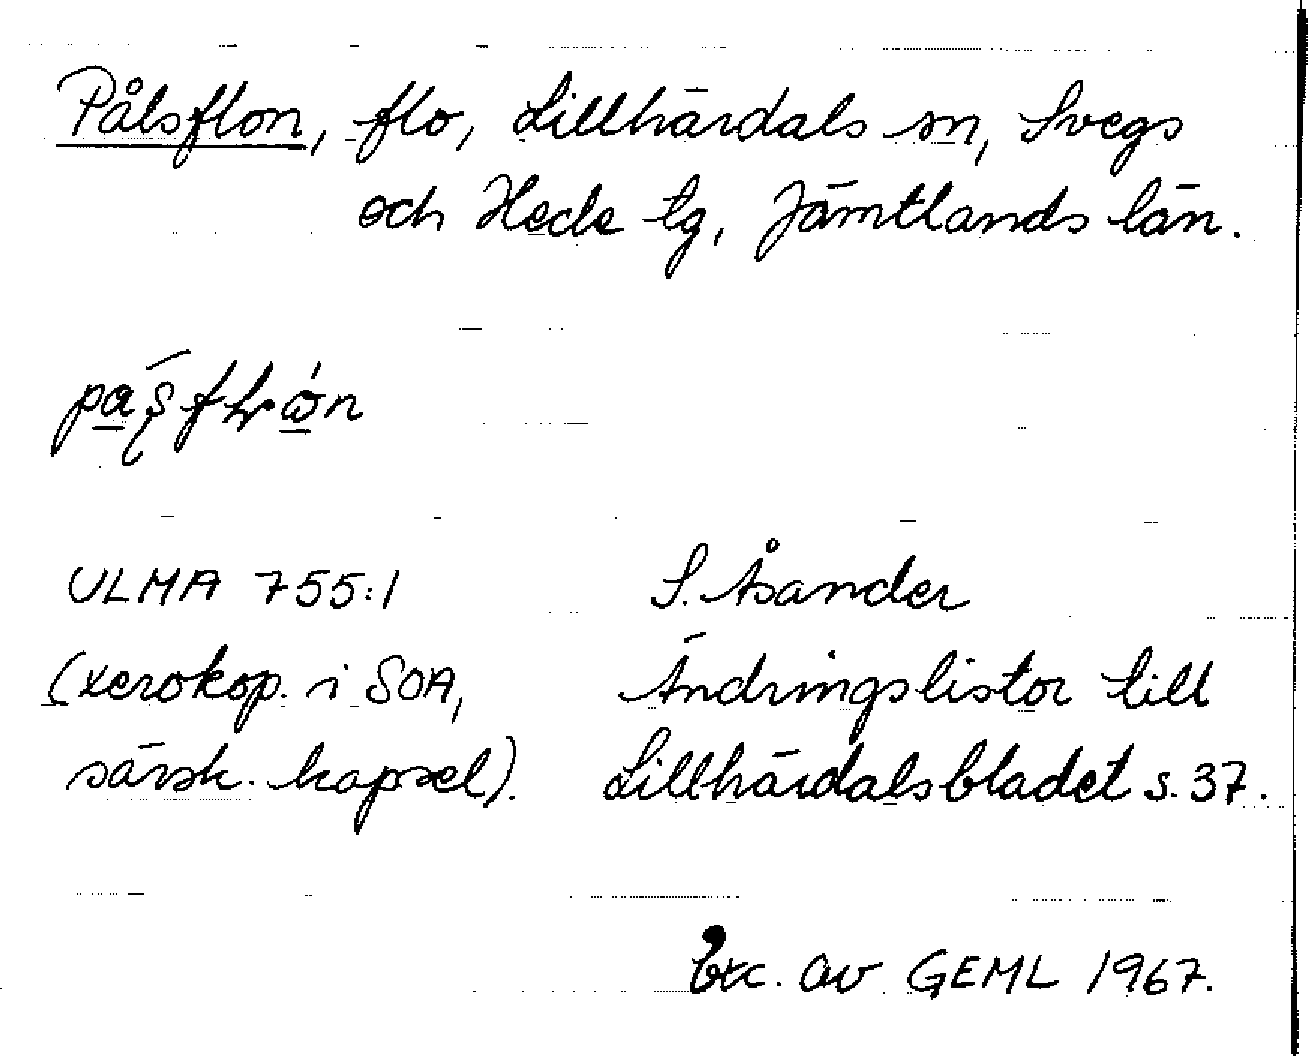 Pålsflon, flo, Lillhärdals sn, Svegs
och Hede tg, Jämtlands län.
ULMA 755:1 S. Åsander
(xerokop. i SOA, Ändringslistor till
särsk. kapsel). Lillhärdalsbladet s. 37.
Exc. av GEML 1967.